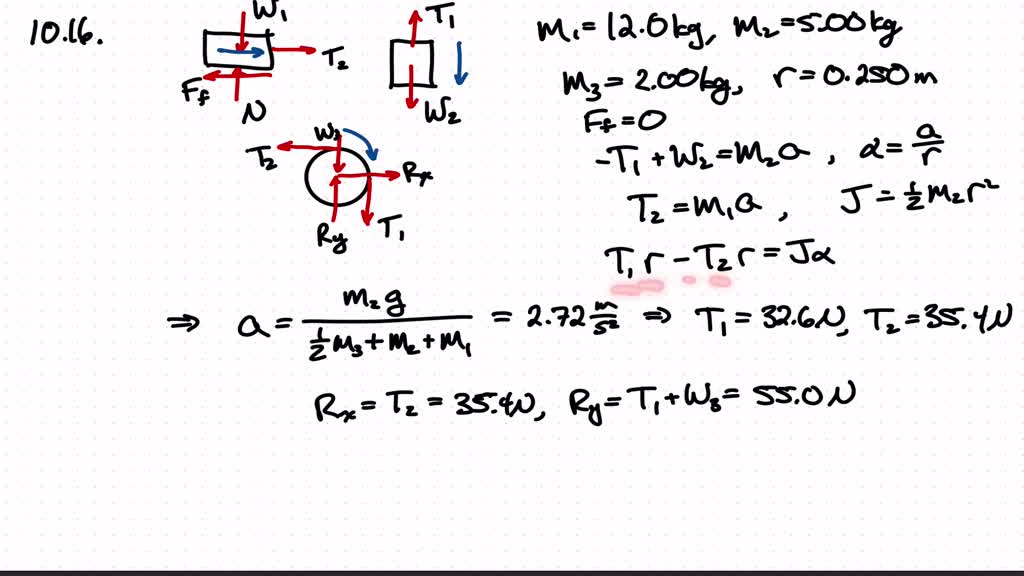 10.16.
W₁
T₂
F_f
N
T₁
W₂
W₃
T₂
Rₓ
R_y
T₁
m₁=12.0kg, m₂=5.00kg
m₃=2.00kg, r=0.250m
F_f=0
-T₁+W₂=m₂a, α=a/r
T₂=m₁a, J=½m₂r²
T₁r-T₂r=Jα
⇒ a = m₂g / (½m₃+m₂+m₁) = 2.72 m/s² ⇒ T₁=32.6N, T₂=35.4N
Rₓ=T₂=35.4N, R_y=T₁+W₃=55.0N